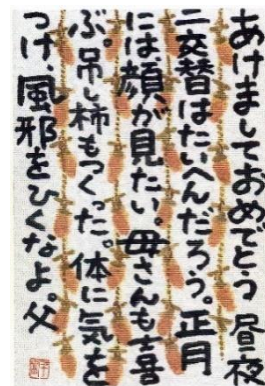 あけましておめでとう 昼夜
二交替はたいへんだろう。正月
には、顔が見たい。母さんも喜
ぶ。吊し柿もつくった。体に気を
つけ、風邪をひくなよ。父